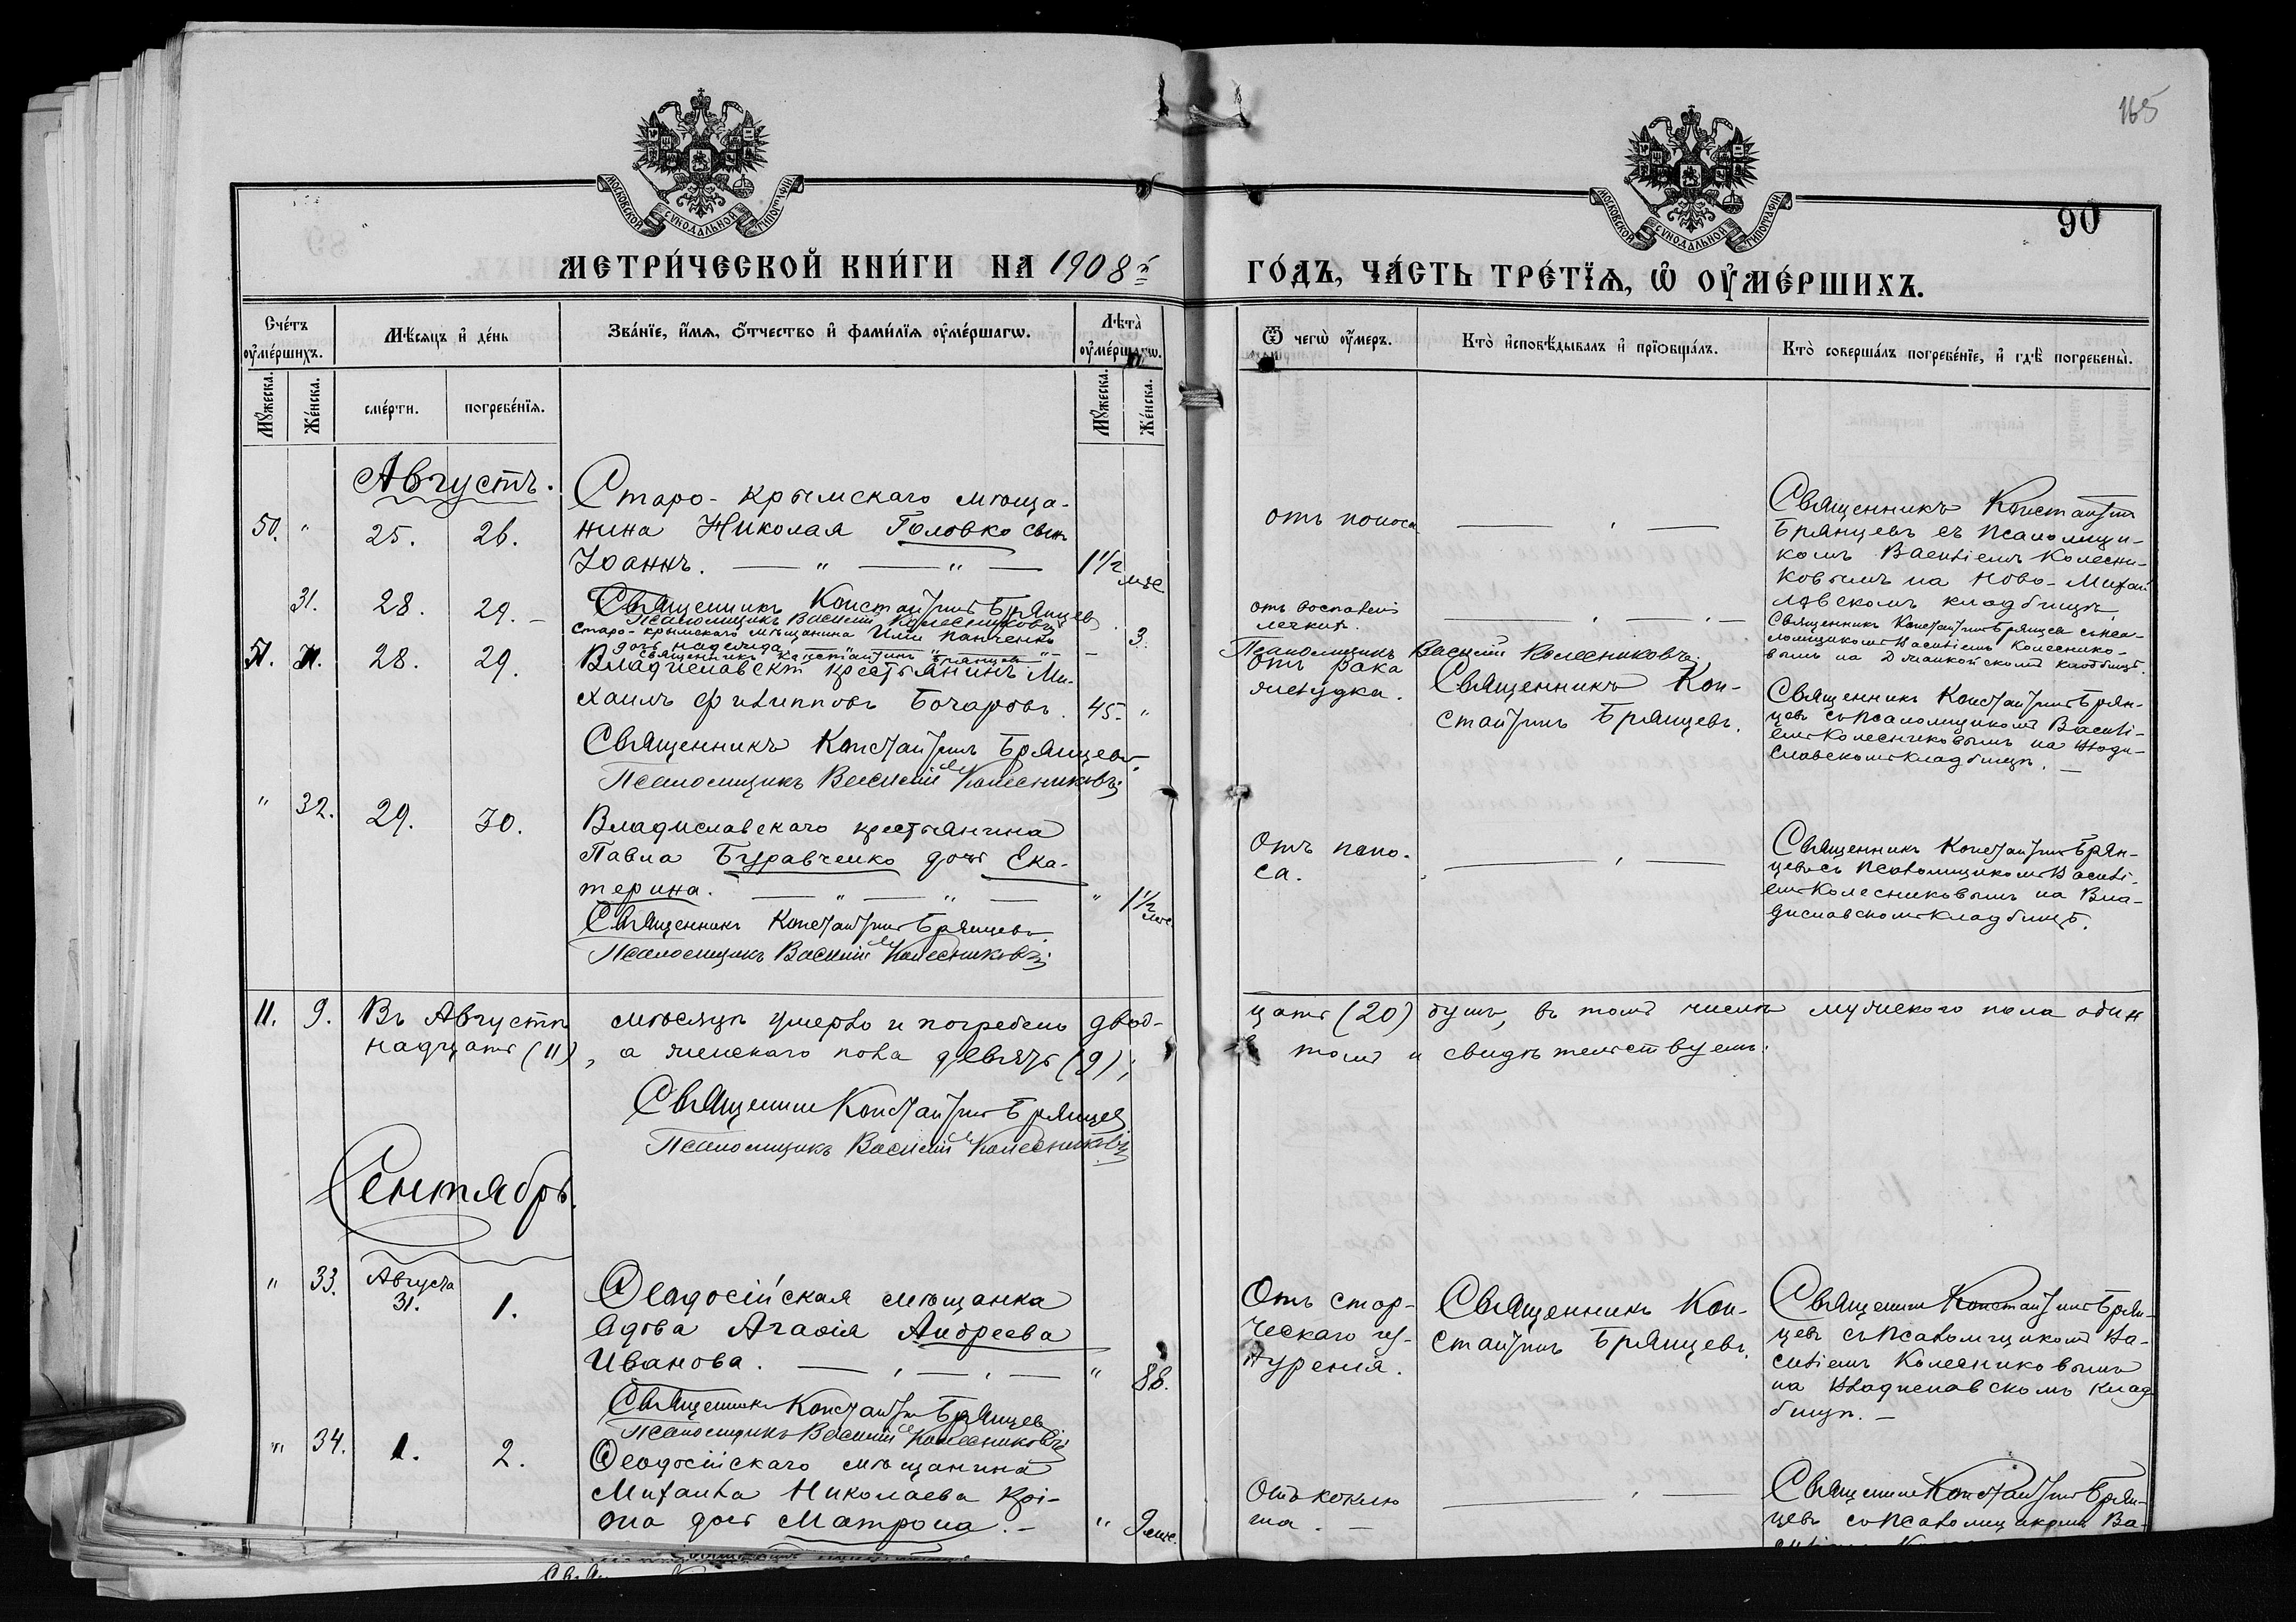 165
МОСКОВСКОЙ СУНОДАЛЬНОЙ ТИПОГРАФІИ
МОСКОВСКОЙ СУНОДАЛЬНОЙ ТИПОГРАФІИ
90
МЕТРИ́ЧЕСКОЙ КНИ́ГИ НА 1908й
ГО́ДЪ, ЧА́СТЬ ТРЕ́ТЇѦ, Ѡ ОУ҆МЕ́РШИХЪ.
Сче́тъ оу҆ме́ршихъ.
Мѣ́сяцъ и҆ де́нь
Зва́нїе, и҆́мя, ѻ҆́тчество и҆ фами́лїя оу҆ме́ршагѡ.
Лѣта̀ оу҆ме́ршагѡ.
Ѿ чегѡ̀ оу҆́меръ.
Кто̀ и҆сповѣ́дывалъ и҆ прїѻбща́лъ.
Кто̀ соверша́лъ погребе́нїе, и҆ гдѣ̀ погребены̀.
Мꙋ́жеска.
Же́нска.
сме́рти.
погребе́нїя.
Мꙋ́жеска.
Же́нска.
Августъ.
50. " 25. 26.
Старо-Крымскаго мѣща-
нина Николая Головко сынъ
Іоаннъ. — " — " — 1 1/2 мѣс
отъ поноса — , —
Священникъ Константинъ
Брянцевъ съ псаломщи-
комъ Василіемъ Колесни-
ковымъ на Ново-Михай
ловскомъ кладбищѣ
31. 28. 29. —
Священникъ Константинъ Брянцевъ
Псаломщикъ Василій Колесниковъ
Старо-Крымскаго мѣщанина Иліи Панченко
дочь Надежда — " — " — 3.
Священникъ Константинъ Брянцевъ
отъ воспаленія
легкихъ. — , — , —
Псаломщикъ Василій Колесниковъ
Священникъ Константинъ Брянцевъ съ пса-
ломщикомъ Василіемъ Колеснико-
вымъ на Джанкойскомъ кладбищѣ.
51. 28. 29.
Владиславскій крестьянинъ Ми-
хаилъ Филипповъ Бочаровъ. 45. "
Священникъ Константинъ Брянцевъ.
Псаломщикъ Василій Колесниковъ
отъ рака
желудка.
Священникъ Кон-
стантинъ Брянцевъ.
Священникъ Константинъ Брян-
цевъ съ псаломщикомъ Василі-
емъ Колесниковымъ на Влади-
славскомъ кладбищѣ. —
" 32. 29. 30.
Владиславскаго крестьянина
Павла Буравченко дочь Ека-
терина. — " — " — " 1 1/2 мѣс.
Священникъ Константинъ Брянцевъ
Псаломщикъ Василій Колесниковъ
Отъ поно-
са. — , —
Священникъ Константинъ Брян-
цевъ съ псаломщикомъ Василі-
емъ Колесниковымъ на Вла-
диславскомъ кладбищѣ.
11. 9. Въ Августѣ мѣсяцѣ умерло и погребено двад-
цать (20) душъ, въ томъ числѣ мужескаго пола один
надцать (11), а женскаго пола девять (9);
въ томъ и свидѣтельствуемъ:
Священникъ Константинъ Брянцевъ
Псаломщикъ Василій Колесниковъ
Сентябрь.
" 33. Августа 31. 1.
Ѳеодосійская мѣщанка
вдова Агафія Андреева
Иванова. — , — , — " 88.
Священникъ Константинъ Брянцевъ
Псаломщикъ Василій Колесниковъ
Отъ стар-
ческаго из-
нуренія.
Священникъ Кон-
стантинъ Брянцевъ.
Священникъ Константинъ Брян-
цевъ съ псаломщикомъ Ва-
силіемъ Колесниковымъ
на Владиславскомъ клад
бищѣ. —
" 34. 1. 2.
Ѳеодосійскаго мѣщанина
Михаила Николаева Крі-
дочь Матрона. — " 9 мѣс.
Отъ коклю
ша. — — , —
Священникъ Константинъ Брян-
цевъ съ псаломщикомъ Ва-